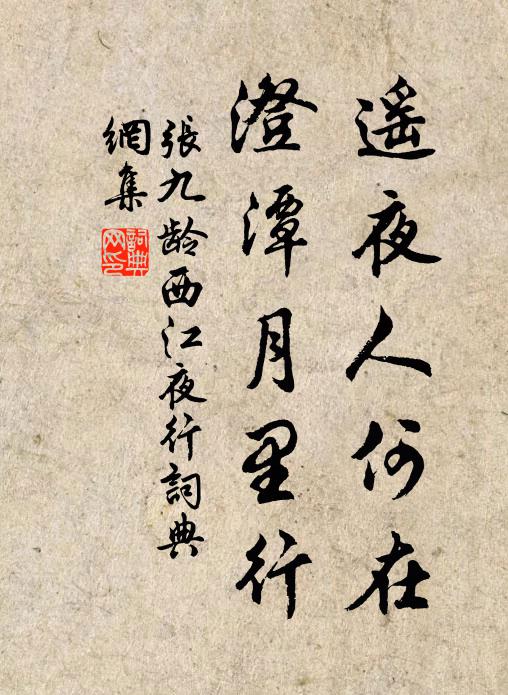 遥夜人何在
澄潭月里行
張九龄西江夜行詞典
網集
詞典
网印